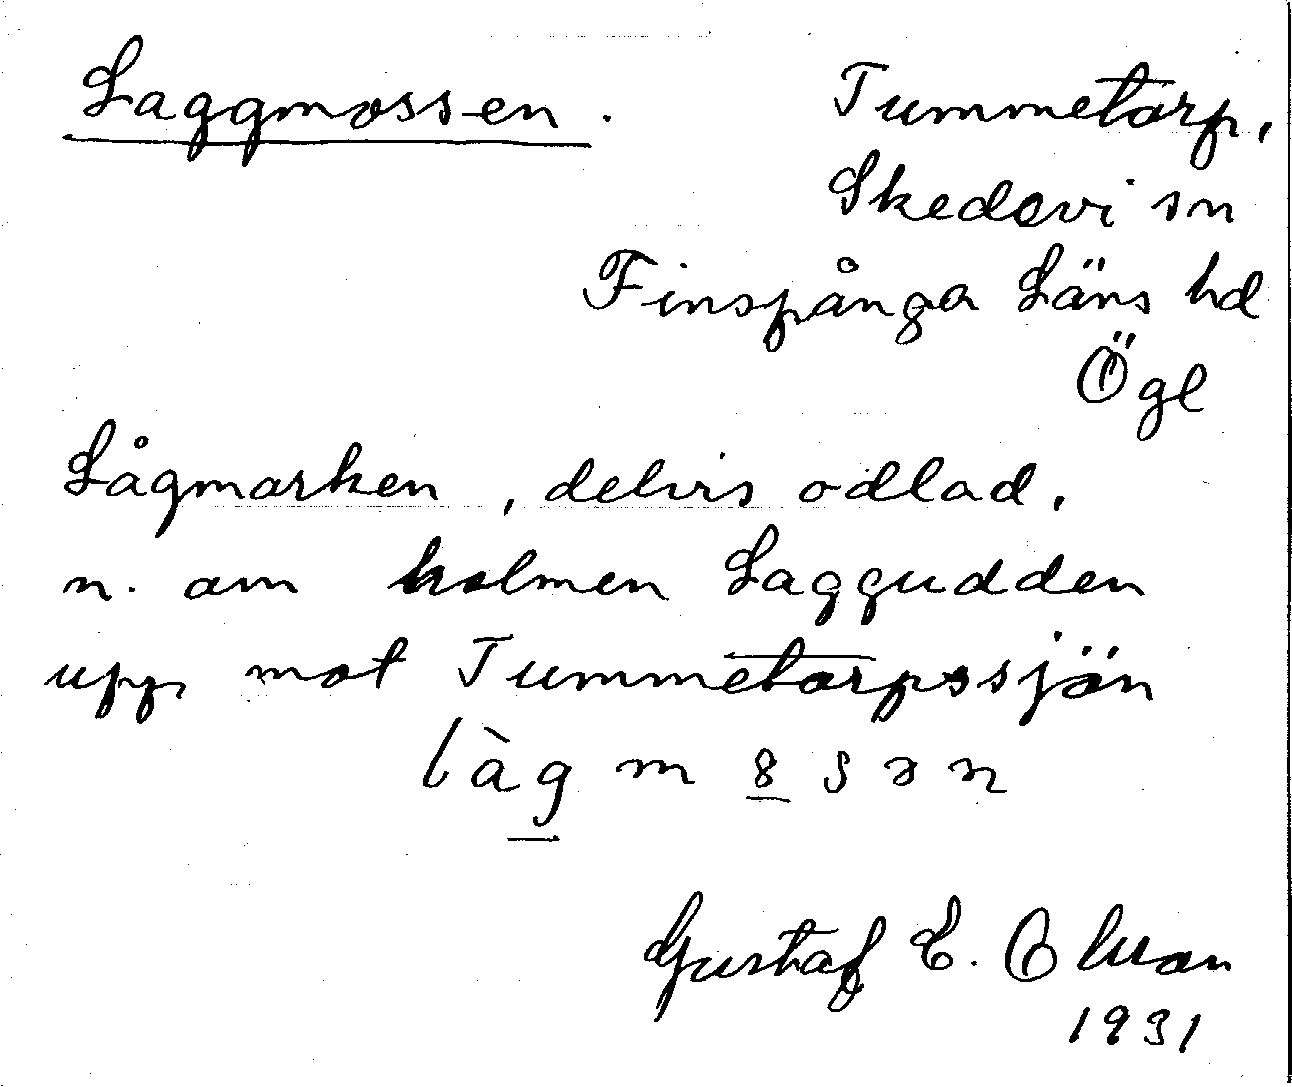 Laggmossen.
Tummetorp,
Skedevi sn
Finspånga Läns hd
Ögl
Lågmarken, delvis odlad,
n. om holmen Laggudden
upp mot Tummetorpssjön
làgm8sən
Gustaf E. Olsson
1931